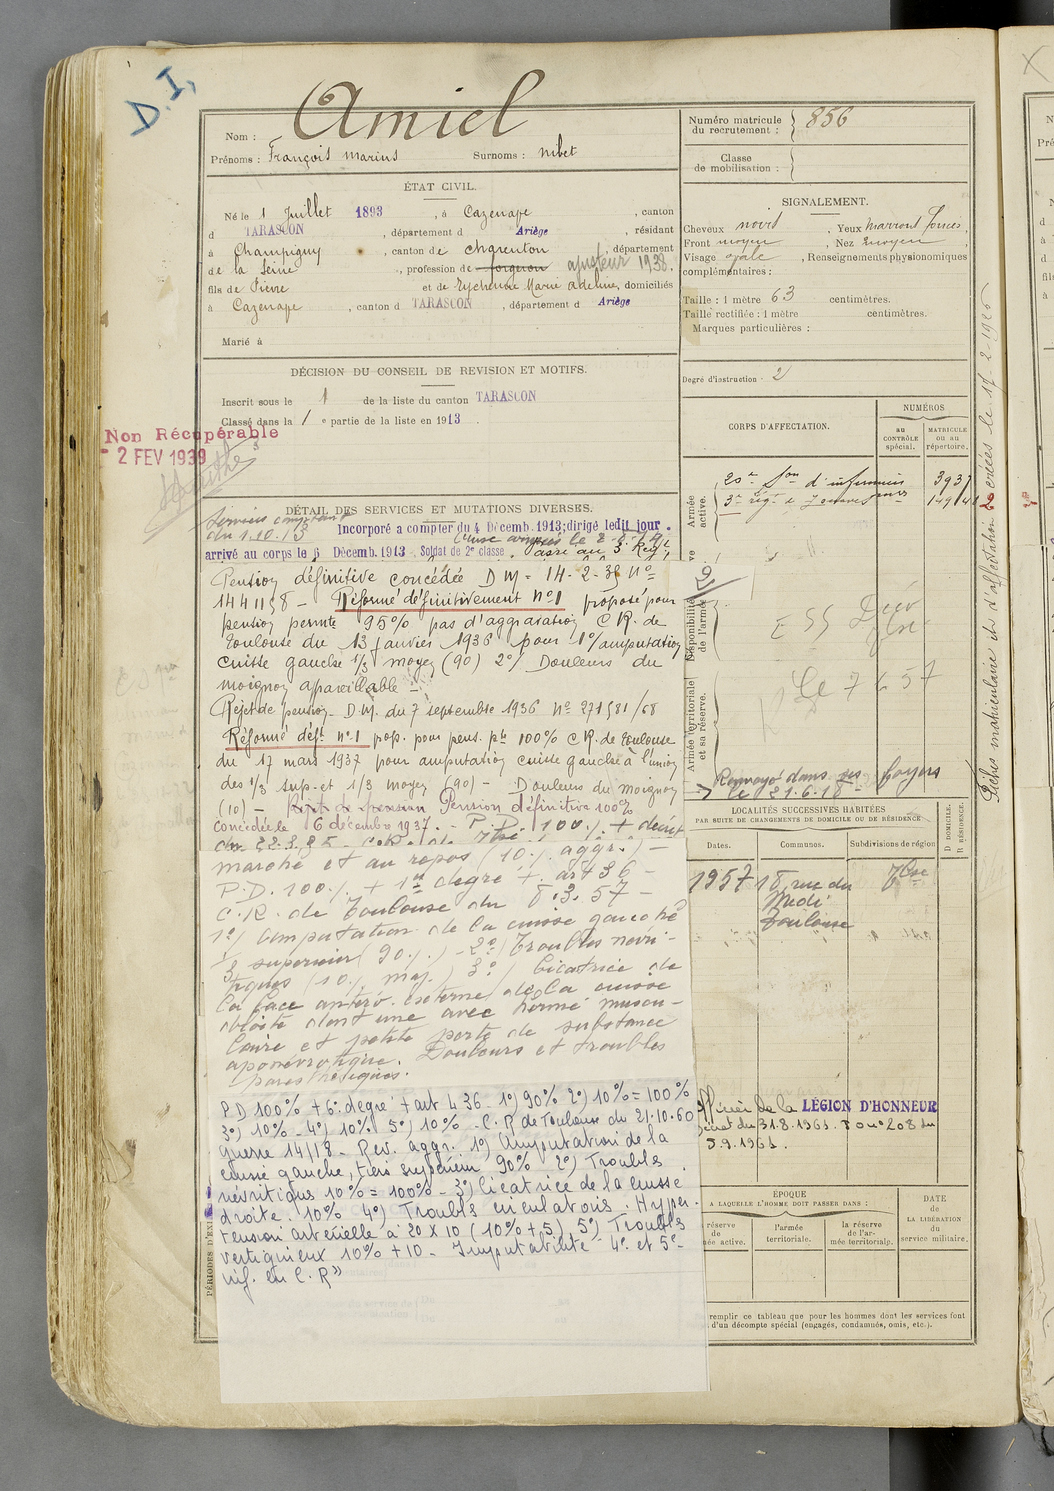 D.I.
Nom : Amiel
Prénoms : François Marius Surnoms : nibet
Numéro matricule du recrutement : 856
Classe de mobilisation :
ÉTAT CIVIL.
Né le 1 Juillet 1893, à Cazenave, canton
d TARASCON, département d Ariège, résidant
à Champigny, canton de charenton, département
de la Seine, profession de forgeron ajusteur 1938,
fils de Pierre et de Eychenne Marie adeline, domiciliés
à Cazenave, canton d TARASCON, département d Ariège
Marié à
SIGNALEMENT.
Cheveux noirs, Yeux marrons foncés,
Front moyen, Nez moyen,
Visage ovale, Renseignements physionomiques
complémentaires :
Taille : 1 mètre 63 centimètres.
Taille rectifiée : 1 mètre centimètres.
Marques particulières :
Degré d'instruction 2
DÉCISION DU CONSEIL DE REVISION ET MOTIFS.
Inscrit sous le 1 de la liste du canton TARASCON
Classé dans la 1e partie de la liste en 1913.
Non Récupérable
2 FEV 1939
CORPS D'AFFECTATION.
NUMÉROS
au CONTRÔLE spécial.
MATRICULE ou au répertoire.
Armée active.
20e Son d'infirmiers 3937
3e rég. de Zouaves
Disponibilité de l'armée
Armée territoriale et sa réserve.
Le 7 6 57
Renvoyé dans ses foyers
le 21.6.18
DÉTAIL DES SERVICES ET MUTATIONS DIVERSES.
Services comptant
du 1.10.13
Incorporé a compter du 4 Décemb. 1913; dirigé ledit jour.
arrivé au corps le 6 Décemb. 1913. Soldat de 2e classe. Passé au 3e Reg.
Pension définitive concédée D M = 14-2-35 No
1441158 - Réformé définitivement no1 proposé pour
pension permte 95% pas d'aggravation C R. de
Toulouse du 13 janvier 1936 pour 1o/ amputation
cuisse gauche 1/3 moyen (90) 2o/ Douleurs du
moignon appareillable -
Rejet de pension - D.M. du 7 septembre 1936 No 271581/68
Réformé déft no1 prop. pour pens. pte 100% C R. de Toulouse
du 17 mars 1937 pour amputation cuisse gauche à l'union
des 1/3 sup. et 1/3 moyen (90) - Douleurs du moignon
(10) - Rejet de pension Pension définitive 100%
concédée le 6 décembre 1937. - P.D. 100% + décret
marche et au repos (10% aggr.) -
P.D. 100% + 1er degré + art 36 -
C.R. de Toulouse du 8.3.57 -
1o/ Amputation de la cuisse gauche
1/3 superieur (90%) - 2o/ Troubles névri-
tiques (10% maj.) 3o/ Cicatrice de
la face antéro-externe de la cuisse
droite dont une avec hernie muscu-
laire et petite perte de substance
aponévrotique. Douleurs et troubles
paresthésiques.
PD 100% + 6o degré + art 4 36 - 1o) 90% 2o) 10% = 100%
3o) 10% - 4o) 10% 5o) 10% - C.R de Toulouse du 21.10.60
Guerre 14/18 - Rev. aggr. 1o) Amputation de la
cuisse gauche, tiers supérieur 90% 2o) Troubles
névritiques 10% = 100% - 3o) Cicatrice de la cuisse
droite. 10% 4o) Troubles circulatoires. Hyper-
tension artérielle à 20 x 10 (10% + 5) 5o) Troubles
vertigineux 10% + 10 - Imputabilité 4o et 5o
inf. en C.R"
LOCALITÉS SUCCESSIVES HABITÉES
PAR SUITE DE CHANGEMENTS DE DOMICILE OU DE RÉSIDENCE
Dates. Communes. Subdivisions de région
D DOMICILE. R RÉSIDENCE.
1957 18 rue du Tlse
Midi
Toulouse
Officier de la LÉGION D'HONNEUR
décret du 31.8.1961. J o no 208 du
5.9.1961.
ÉPOQUE
A LAQUELLE L'HOMME DOIT PASSER DANS :
réserve de
née active.
l'armée territoriale.
la réserve de l'armée territoriale.
DATE de LA LIBÉRATION du service militaire.
remplir ce tableau que pour les hommes dont les services font
d'un décompte spécial (engagés, condamnés, omis, etc.).